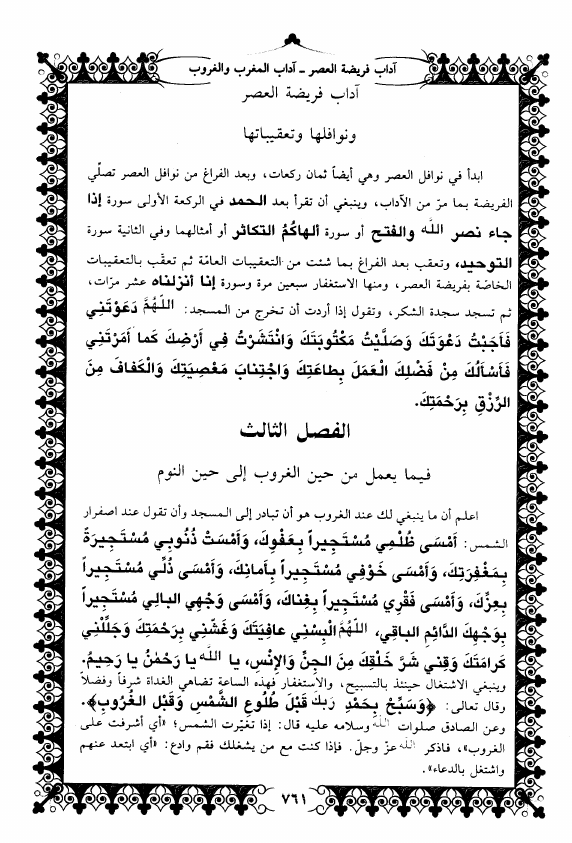 آداب فريضة العصر ـ آداب المغرب والغروب
آداب فريضة العصر
ونوافلها وتعقيباتها
ابدأ في نوافل العصر وهي أيضاً ثمان ركعات، وبعد الفراغ من نوافل العصر تصلّي
الفريضة بما مرّ من الآداب، وينبغي أن تقرأ بعد الحمد في الركعة الأولى سورة إذا
جاء نصر الله والفتح أو سورة ألهاكُمُ التكاثر أو أمثالهما وفي الثانية سورة
التوحيد، وتعقب بعد الفراغ بما شئت من التعقيبات العامّة ثم تعقّب بالتعقيبات
الخاصّة بفريضة العصر، ومنها الاستغفار سبعين مرة وسورة إنا أنزلناه عشر مرّات،
ثم تسجد سجدة الشكر، وتقول إذا أردت أن تخرج من المسجد: اللهُمَّ دَعَوْتَني
فَأَجَبْتُ دَعْوَتَكَ وَصَلَّيْتُ مَكْتُوبَتَكَ وَانْتَشَرْتُ فِي أَرْضِكَ كَما أَمَرْتَني
فَأَسْأَلُكَ مِنْ فَضْلِكَ الْعَمَلَ بِطاعَتِكَ وَاجْتِنابَ مَعْصِيَتِكَ وَالْكَفافَ مِنَ
الرِّزْقِ بِرَحْمَتِكَ.
الفصل الثالث
فيما يعمل من حين الغروب إلى حين النوم
اعلم أن ما ينبغي لك عند الغروب هو أن تبادر إلى المسجد وأن تقول عند اصفرار
الشمس: أَمْسَى ظُلْمِي مُسْتَجِيراً بِعَفْوِكَ، وَأَمْسَتْ ذُنُوبِي مُسْتَجِيرَةً
بِمَغْفِرَتِكَ، وَأَمْسَى خَوْفِي مُسْتَجِيراً بِأَمانِكَ، وَأَمْسَى ذُلِّي مُسْتَجِيراً
بِعِزِّكَ، وَأَمْسَى فَقْرِي مُسْتَجِيراً بِغِناكَ، وَأَمْسَى وَجْهِي البالِي مُسْتَجِيراً
بِوَجْهِكَ الدَّائِمِ الباقِي، اللهُمَّ البِسْنِي عافِيَتَكَ وَغَشِّنِي بِرَحْمَتِكَ وَجَلِّلْنِي
كَرامَتَكَ وَقِنِي شَرَّ خَلْقِكَ مِنَ الجِنِّ وَالإِنْسِ، يا الله يا رَحْمٰنُ يا رَحِيمُ.
وينبغي الاشتغال حينئذ بالتسبيح، والاستغفار فهذه الساعة تضاهي الغداة شرفاً وفضلاً
وقال تعالى: ﴿وَسَبِّحْ بِحَمْدِ رَبِّكَ قَبْلَ طُلُوعِ الشَّمْسِ وَقَبْلَ الغُرُوبِ﴾.
وعن الصادق صلوات الله وسلامه عليه قال: إذا تغيّرت الشمس؛ «أي أشرفت على
الغروب»، فاذكر الله عزّ وجلّ. فإذا كنت مع من يشغلك فقم وادع: «أي ابتعد عنهم
واشتغل بالدعاء».
٧٦١